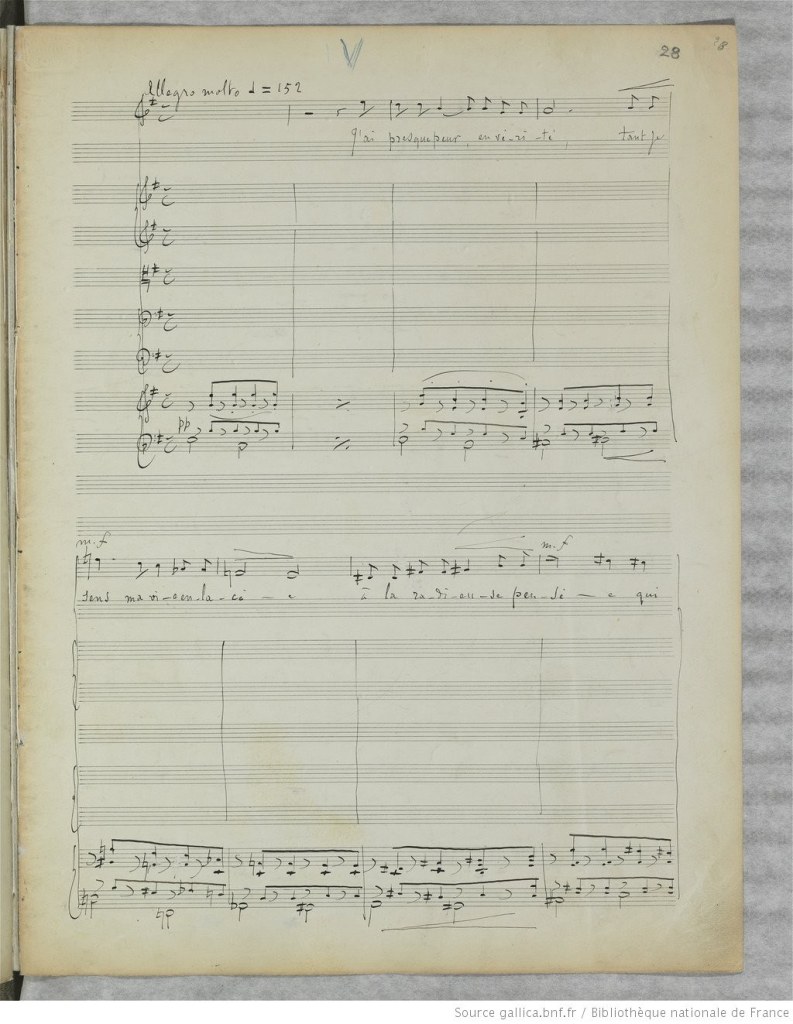 V
28
28
Allegro molto 𝅗𝅥 = 152
J'ai presque peur, en vé-ri-té, tant je
pp
m.f m.f
sens ma vi-e en-la-cé-e à la ra-di-eu-se pen-sé-e qui
Source gallica.bnf.fr / Bibliothèque nationale de France